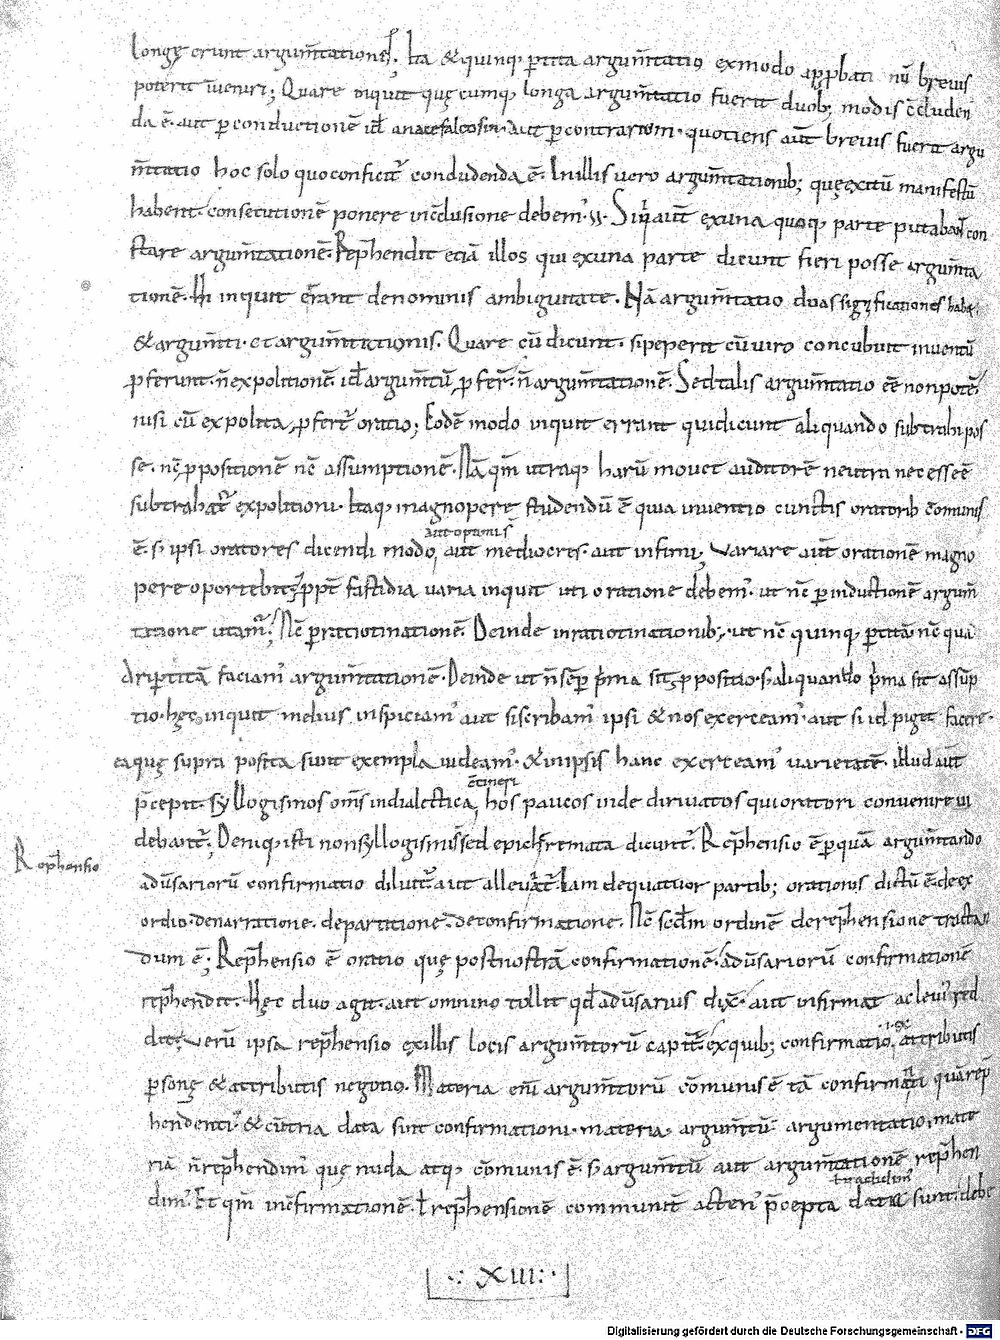 longę erunt argum̄tationes. Ita & quinq; ꝑtita argum̄tatio ex modo app̱bati nū brevis
poterit īveniri; Quare inquit quęcumq; longa argum̄tatio fuerit duob; modis c̄cluden
da ē. aut ꝑ conductionē id anacefaleosin. aut ꝑ contrarium. quotiens aūt brevis fuerit argu
m̄tatio hoc solo quo conficit̄ concludenda ē. In illis vero argum̄tationib; quę exitū manifestū
habent. consecutionē ponere in c̄clusione debem'. Siq̄ aūt ex una quoq; parte putabant con
stare argum̄tationē. Rep̄hendit etiā illos qui ex una parte dicunt fieri posse argum̄ta
tionē. Hi inquit errant de nominis ambiguitate. Nā argum̄tatio duas significationes habet
& argum̄ti. et argum̄tationis. Quare cū dicunt. si peperit cū viro concubuit inventū
ꝓferunt. n̄ expolitionē. id argum̄tū ꝓfer̄. n̄ argum̄tationē. Sed talis argum̄tatio eē non potē
nisi cū expolita ꝓfert̄ oratio; Eodē modo inquit errant qui dicunt aliquando subtrahi pos
se. nec̄ ꝓpositionē nec̄ assumptionē. Nā qm̄ utraq; harū movet auditorē neutra necesse ē
subtrahat̄ expolitioni. Itaq; magnopere studendū ē quia inventio cunctis oratorib; c̄munis
aut optimis
ē. s; ipsi oratores dicendi modo, aut mediocres. aut infirmi, Variare aūt orationē magno
pere oportebit; ꝓpt̄ fastidia varia inquit uti oratione debem'. ut nec̄ ꝑ inductionē argum̄
tatione utam̄. Nec̄ ꝑ ratiotinationē. Deinde in ratiotinationib; ut nec̄ quinq; ꝑtitā nec̄ qua
driꝑtitā faciam' argum̄tationē. Deinde ut n̄ sēꝑ p̄ma sit ꝓpositio. s; aliquando p̄ma sit assūp
tio. hęc inquit melius inspiciam' aut si scribam' ipsi & nos exerceam' aut si id piget facere.
ea quę supra posita sunt exempla videam'. & in ipsis hanc exerceam' varietatē. illud aūt
c̄tineri
p̄cepit. syllogismos om̄s in dialectica, hos paucos inde dirivatos qui oratori convenire vi
debant̄. Deniq; isti non syllogismi sed epichiremata dicunt̄. Rep̄hensio ē ꝑ quā argum̄tando
Rep̄hensio
adūsariorū confirmatio diluit̄ aut allevat̄. Iam de quatuor partib; orationis dictū ē. de ex
ordio. de narratione. de partitione. de confirmatione. Nc̄ scdm̄ ordinē de rep̄hensione tractan
dum ē; Rep̄hensio ē oratio quę post nostrā confirmationē. adūsariorū confirmationē
rep̄hendit. Hęc duo agit. aut omnino tollit qđ adūsarius dix̄. aut infirmat ac levi' red
dit; Verū ipsa rep̄hensio ex illis locis argum̄torū capit̄ ex quib; confirmatio, attributis
ꝑsonę & attributis negotio. Materia eni argum̄torū c̄munis ē tā confirmati quā rep̄
hendenti. & c̄tria data sunt confirmationi. materia. argum̄tū. argumentatio, mate
riā n̄ rep̄hendim' quę nuda atq; c̄munis ē. s; argum̄tū aut argum̄tationē rep̄hen
dim'. Et qm̄ in c̄firmationē. ł rep̄hensionē communit̄ p̄cepta data sunt. debe
XIII
Digitalisierung gefördert durch die Deutsche Forschungsgemeinschaft - DFG